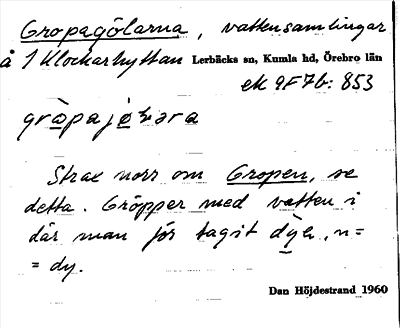 Gropagölarna, vattensamlingar
å 1 Klockarhyttan Lerbäcks sn, Kumla hd, Örebro län
ek 9F7b: 853
Strax norr om Gropen, se
detta. Gröpper med vatten i
där man för tagit dye, n=
= dy.
Dan Höjdestrand 1960